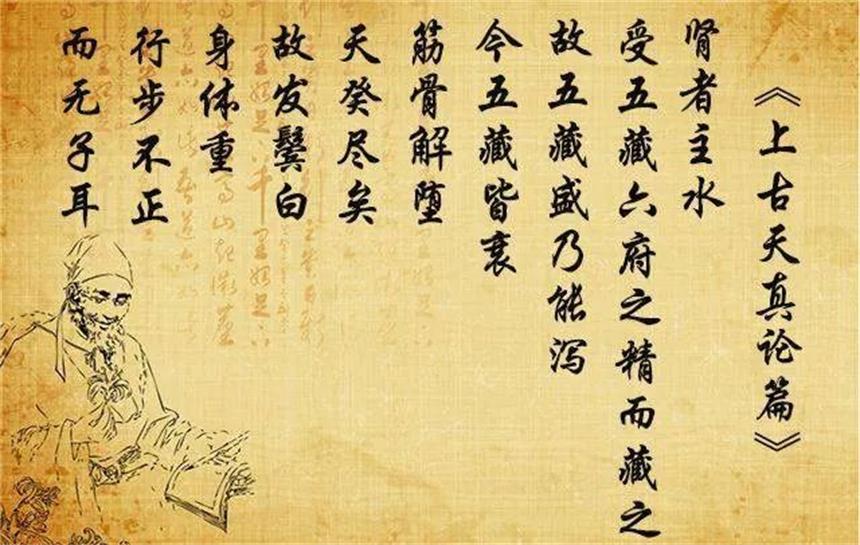 《上古天真论篇》
肾者主水
受五藏六府之精而藏之
故五藏盛乃能泻
今五藏皆衰
筋骨解堕
天癸尽矣
故发鬓白
身体重
行步不正
而无子耳